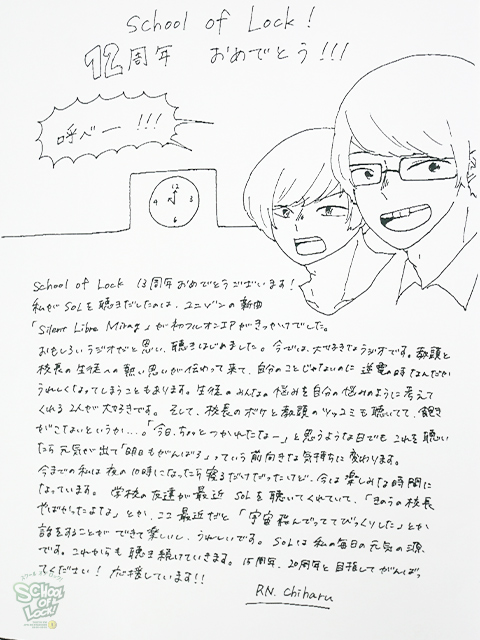 School of Lock!
12周年 おめでとう!!!
呼べー !!!
12
3
6
9
School of Lock 13周年おめでとうございます!
私がSOLを聴きだしたのは、ユニゾンの新曲
「Silent Libre Mirage」が初フルオンエアがきっかけでした。
おもしろいラジオだと思い、聴きはじめました。今では、大好きなラジオです。教頭と
校長の生徒への熱い思いが伝わって来て、自分のことじゃないのに 逆電の時なんだか
うれしくなってしまうこともあります。生徒のみんなの悩みを自分の悩みのように考えて
くれる2人が大好きです。そして、校長のボケと教頭のツッコミも聴いてて、飽き
がこないというか...。「今日、ちょっとつかれたなー」と思うような日でも これを聴い
たら元気が出て「明日もがんばろう」っていう前向きな気持ちに変わります。
今までの私は 夜の10時になったら寝るだけだったけど、今は楽しみな時間に
なっています。 学校の友達が最近 SOLを聴いてくれていて、「きのうの校長
やばかったよな」とか、ここ最近だと「宇宙飛んでっててびっくりした」とか
話をすることができて楽しいし、うれしいです。SOLは私の毎日の元気の源
です。これからも聴き続けていきます。15周年、20周年と目指してがんばっ
てください! 応援しています!!
RN. Chiharu
SCHOOL
OF
LOCK!